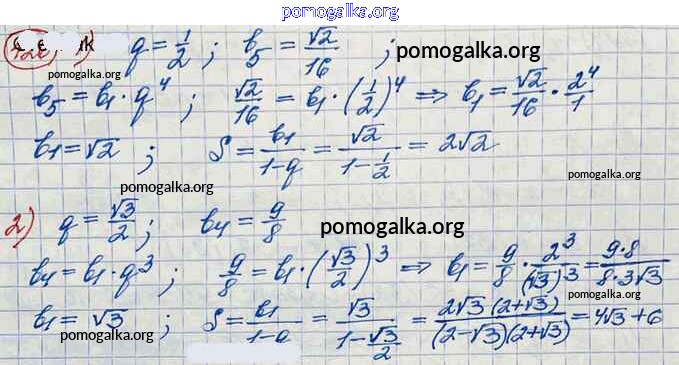 pomogalka.org
1) q = 1/2 ; b₅ = √2/16 ; pomogalka.org
pomogalka.org
b₅ = b₁ · q⁴ ; √2/16 = b₁ · (1/2)⁴ ⇒ b₁ = √2/16 · 2⁴/1
pomogalka.org
b₁ = √2 ; S = b₁/(1-q) = √2/(1-1/2) = 2√2
pomogalka.org
pomogalka.org
2) q = √3/2 ; b₄ = 9/8 pomogalka.org
b₄ = b₁ · q³ ; 9/8 = b₁ · (√3/2)³ ⇒ b₁ = 9/8 · 2³/(√3)³ = 9·8/(8·3√3)
pomogalka.org
b₁ = √3 ; S = b₁/(1-q) = √3/(1-√3/2) = 2√3(2+√3)/((2-√3)(2+√3)) = 4√3+6
pomogalka.org
pomogalka.org